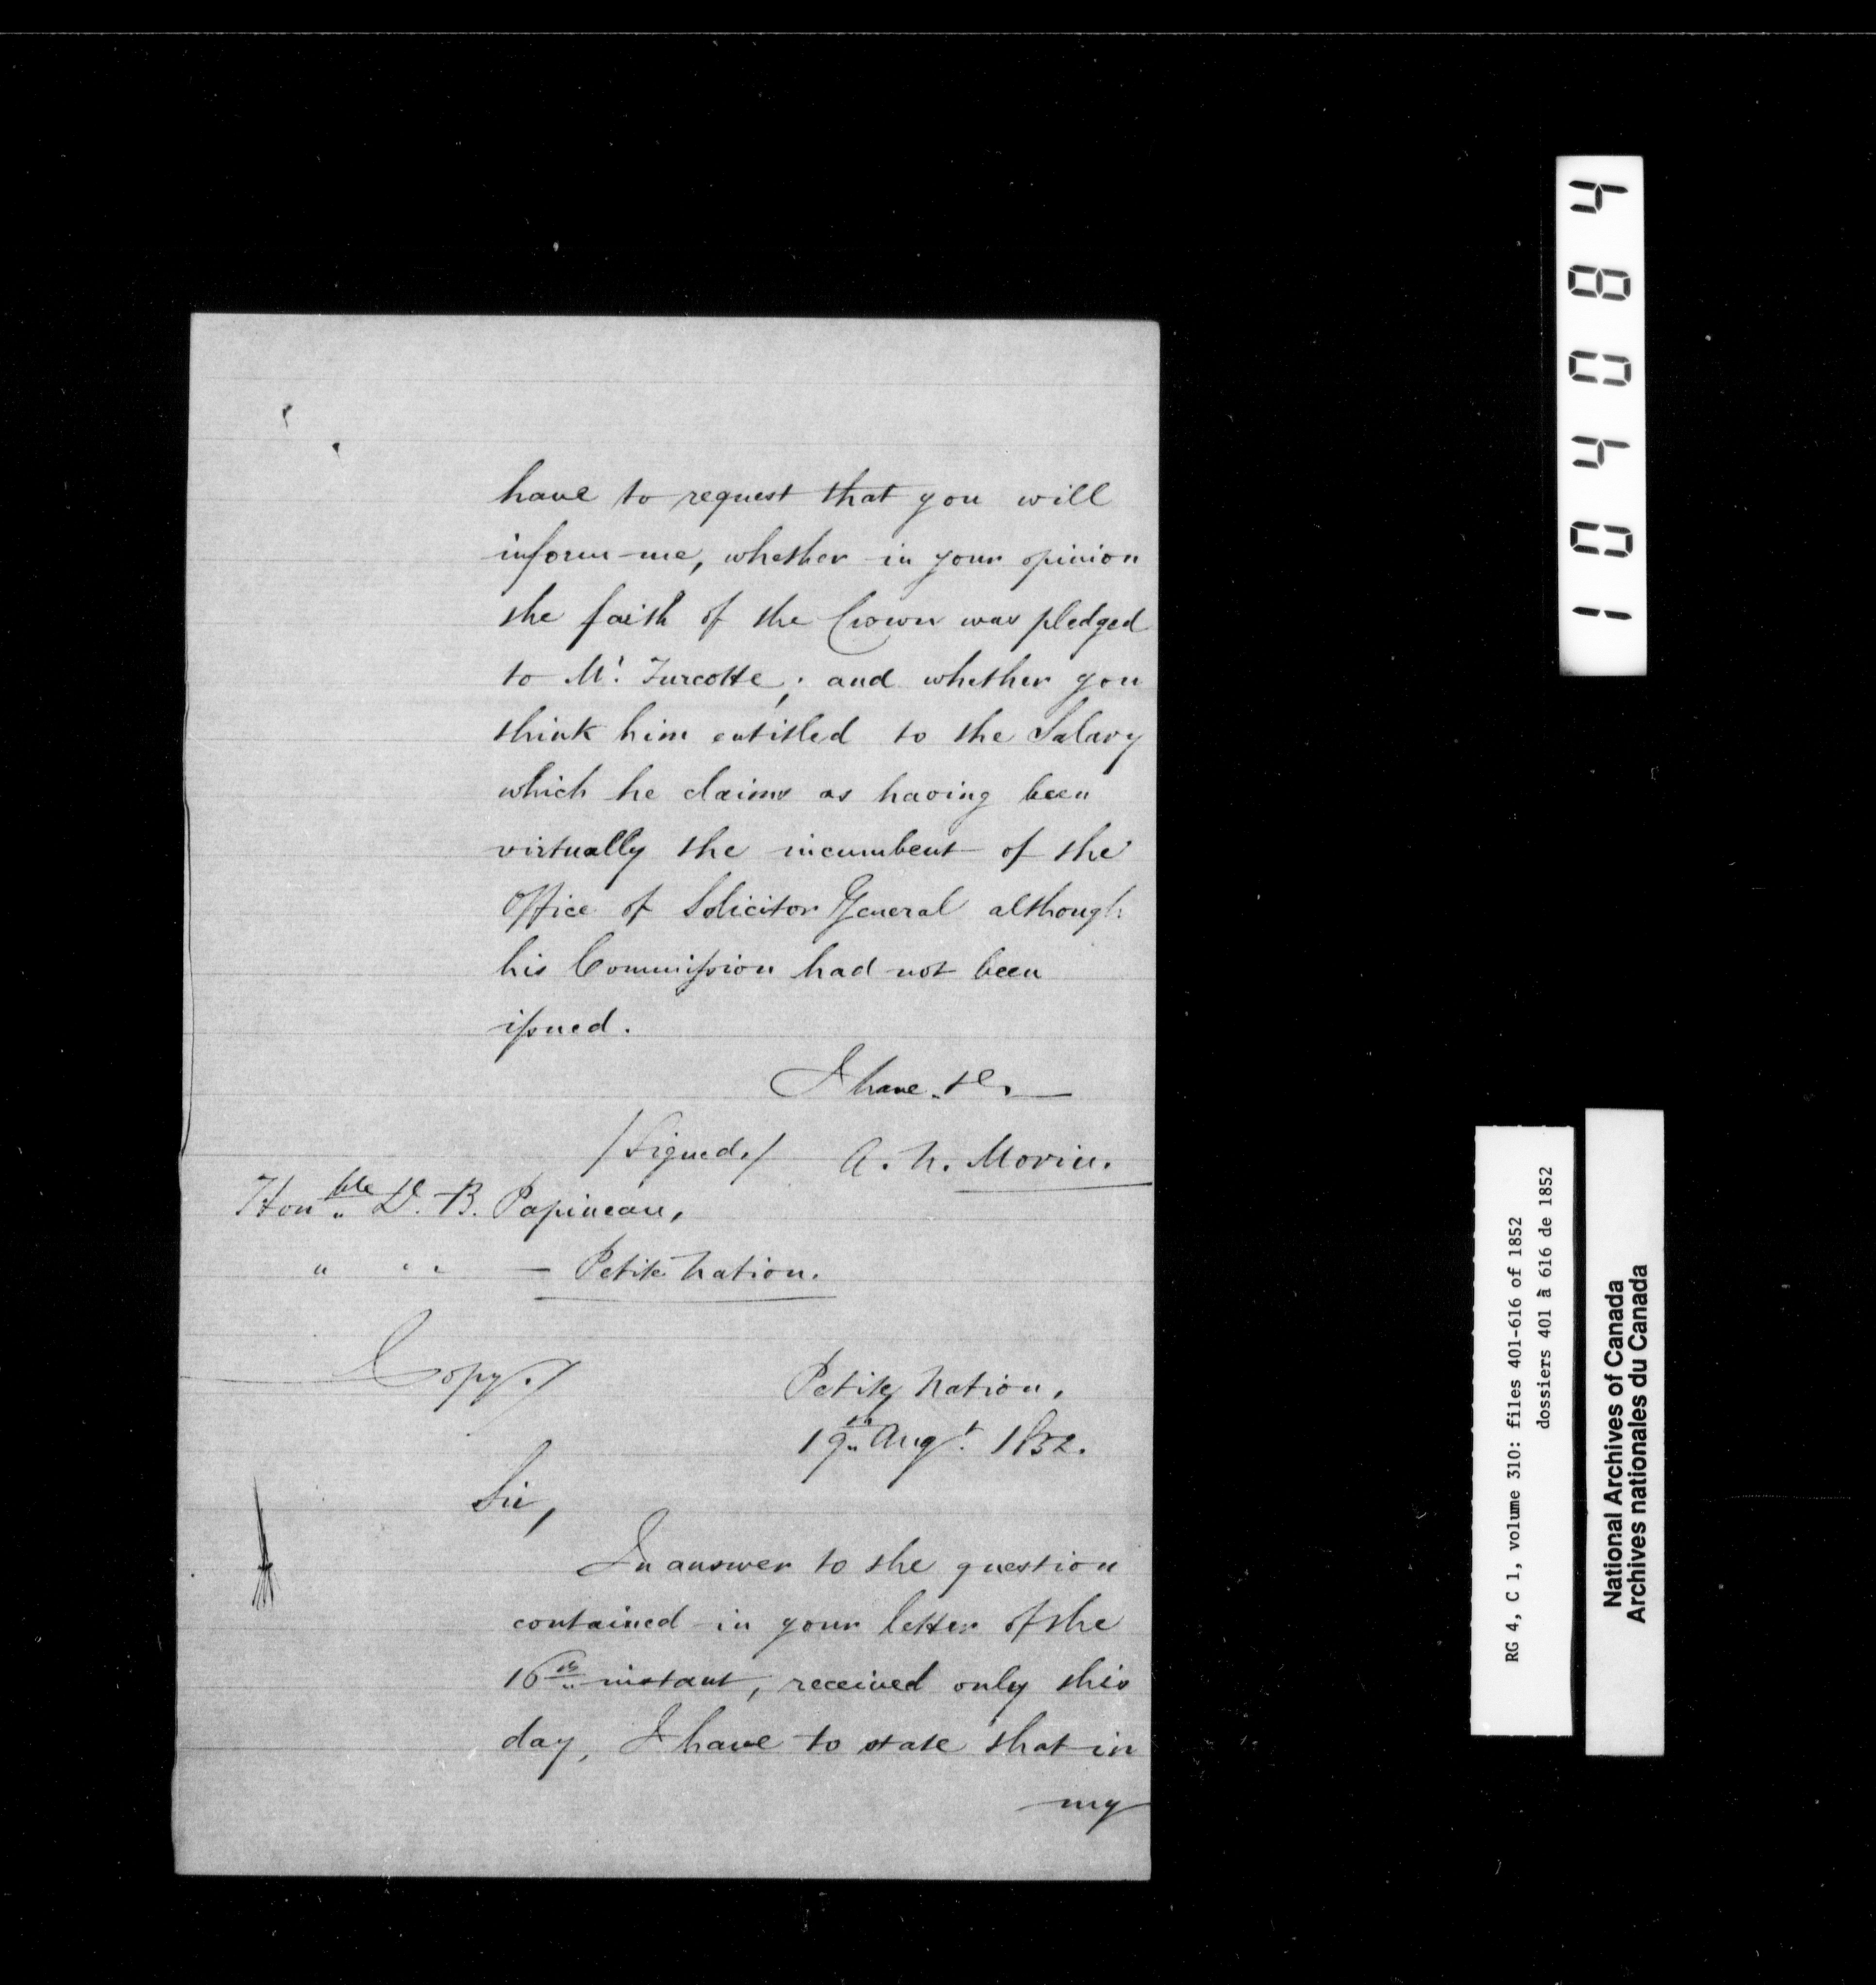 have to request that you will
inform me, whether in your opinion
the faith of the Crown was pledged
to Mr. Turcotte; and whether you
think him entitled to the Salary
which he claims as having been
virtually the incumbent of the
Office of Solicitor General although
his Commission had not been
issued.
I have &c.
/Signed./ A. N. Morin.
Honble D. B. Papineau,
" " " — Petite Nation.
Copy./
Petite Nation,
19th Augt. 1852.
Sir,
In answer to the question
contained in your letter of the
16th instant, received only this
day, I have to state that in
my
104084
RG 4, C 1, volume 310: files 401-616 of 1852
dossiers 401 à 616 de 1852
National Archives of Canada
Archives nationales du Canada